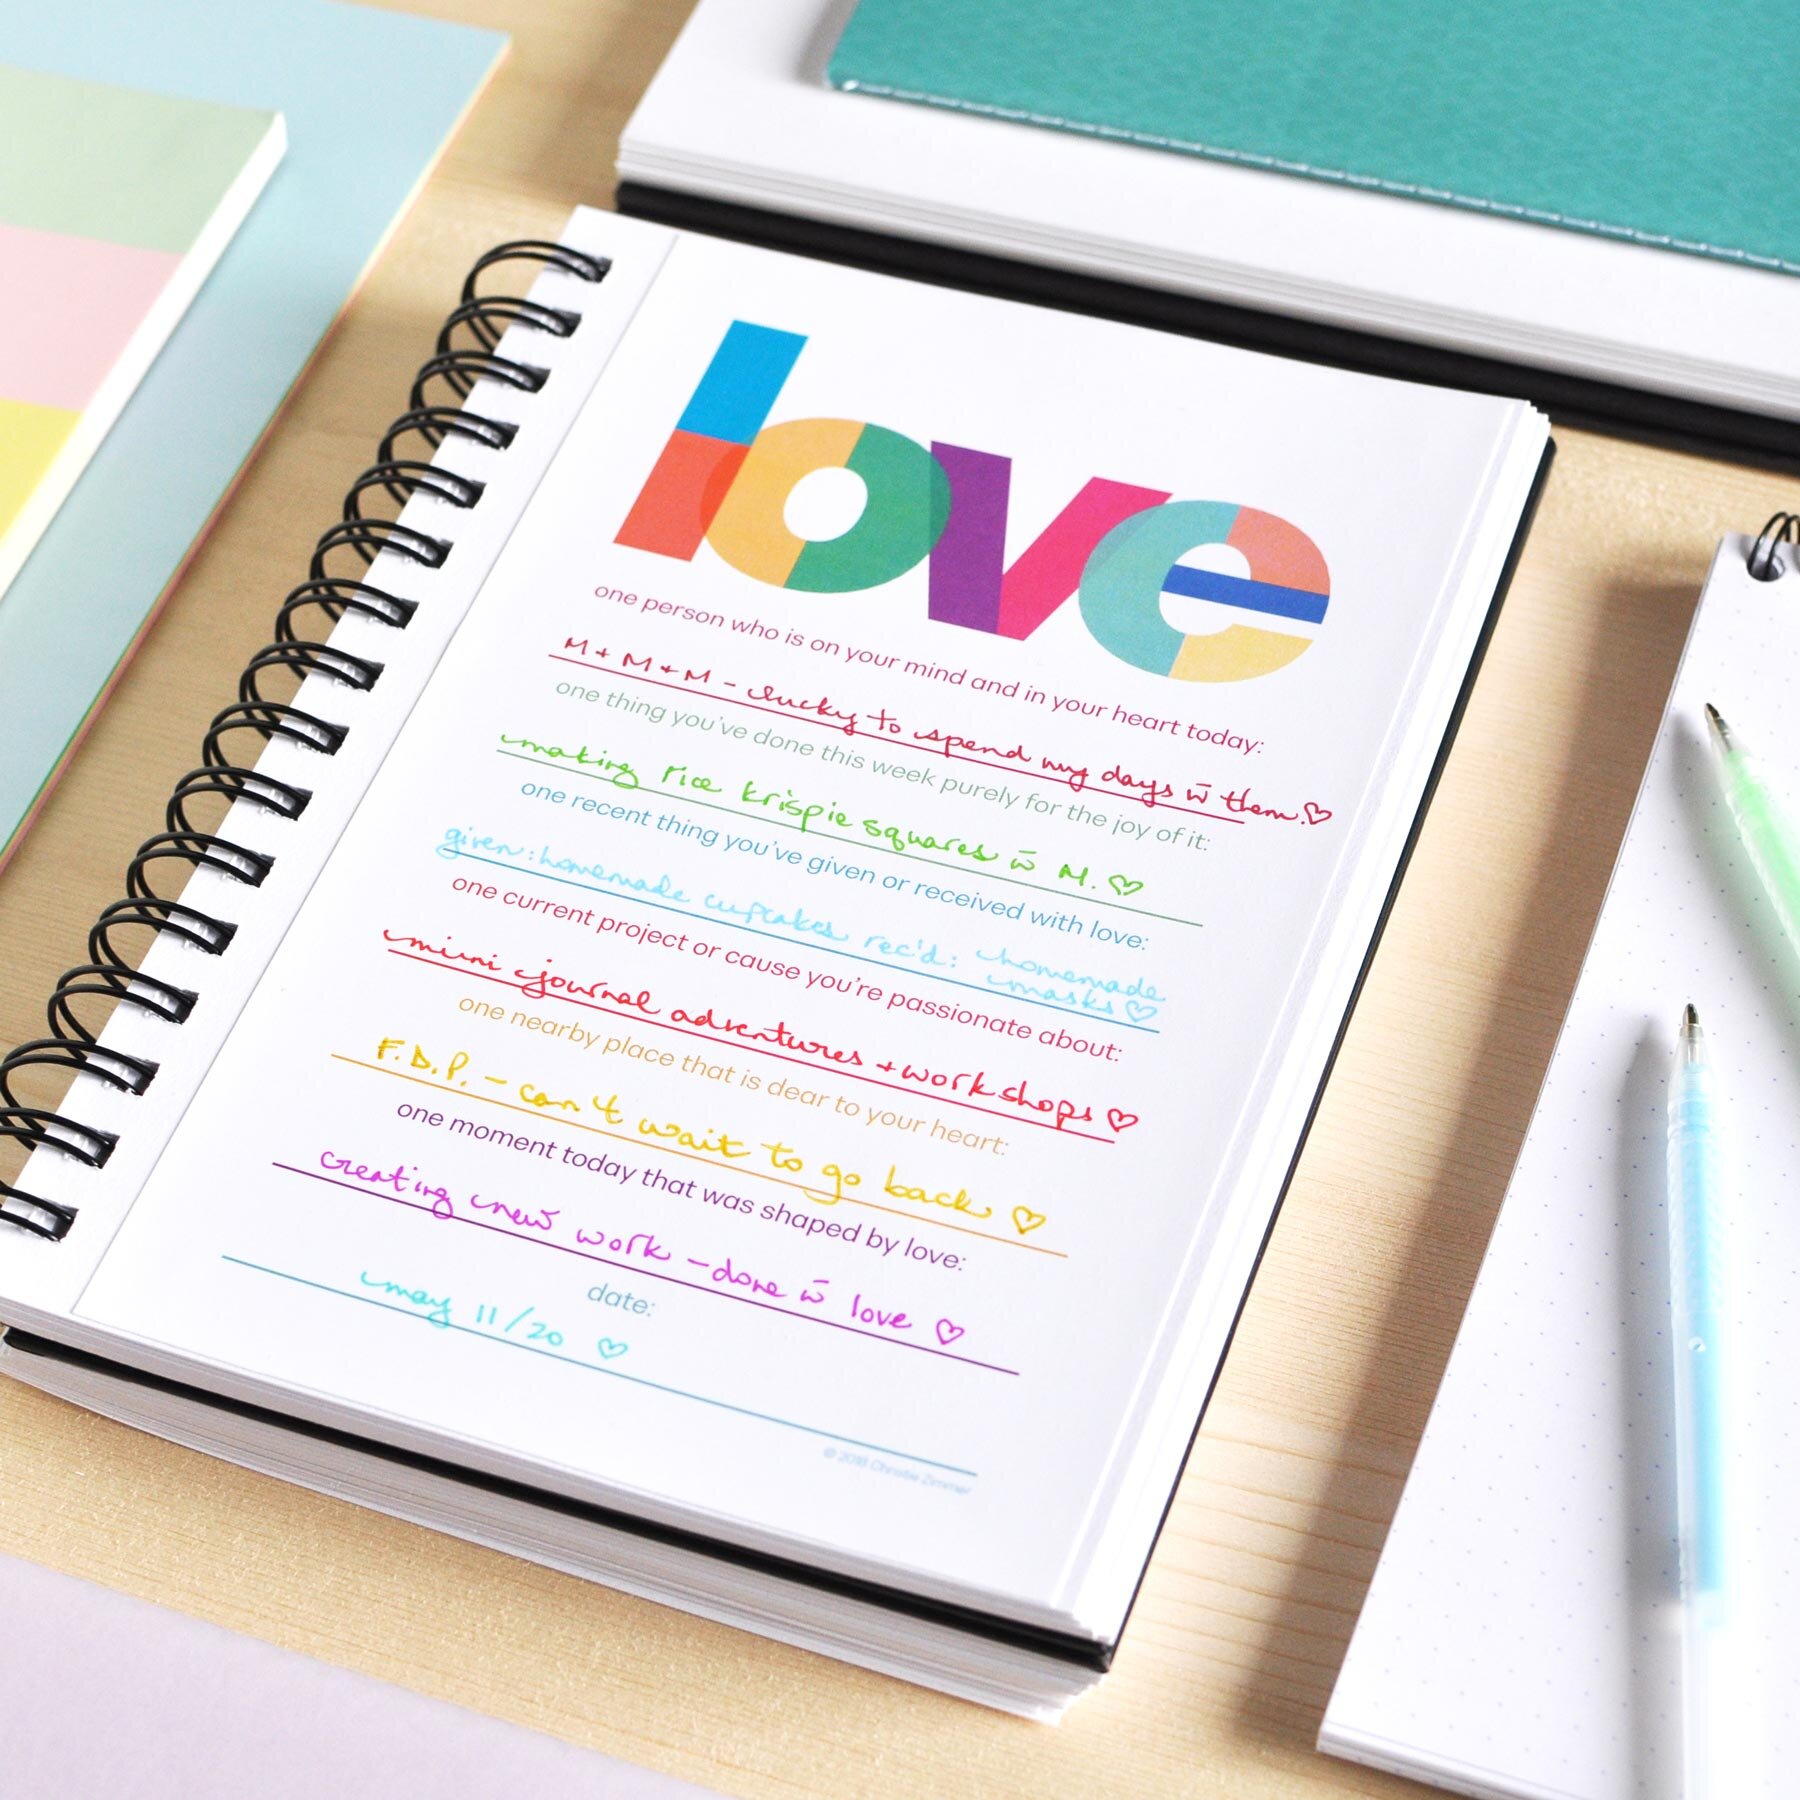 love
one person who is on your mind and in your heart today:
M + M + M - lucky to spend my days w̄ them. ♡
one thing you've done this week purely for the joy of it:
making rice krispie squares w̄ M. ♡
one recent thing you've given or received with love:
given: homemade cupcakes rec'd: homemade
masks ♡
one current project or cause you're passionate about:
mini journal adventures + workshops ♡
one nearby place that is dear to your heart:
F.D.P. - can't wait to go back ♡
one moment today that was shaped by love:
creating new work - done w̄ love ♡
date:
may 11/20 ♡
© 2018 Christie Zimmer